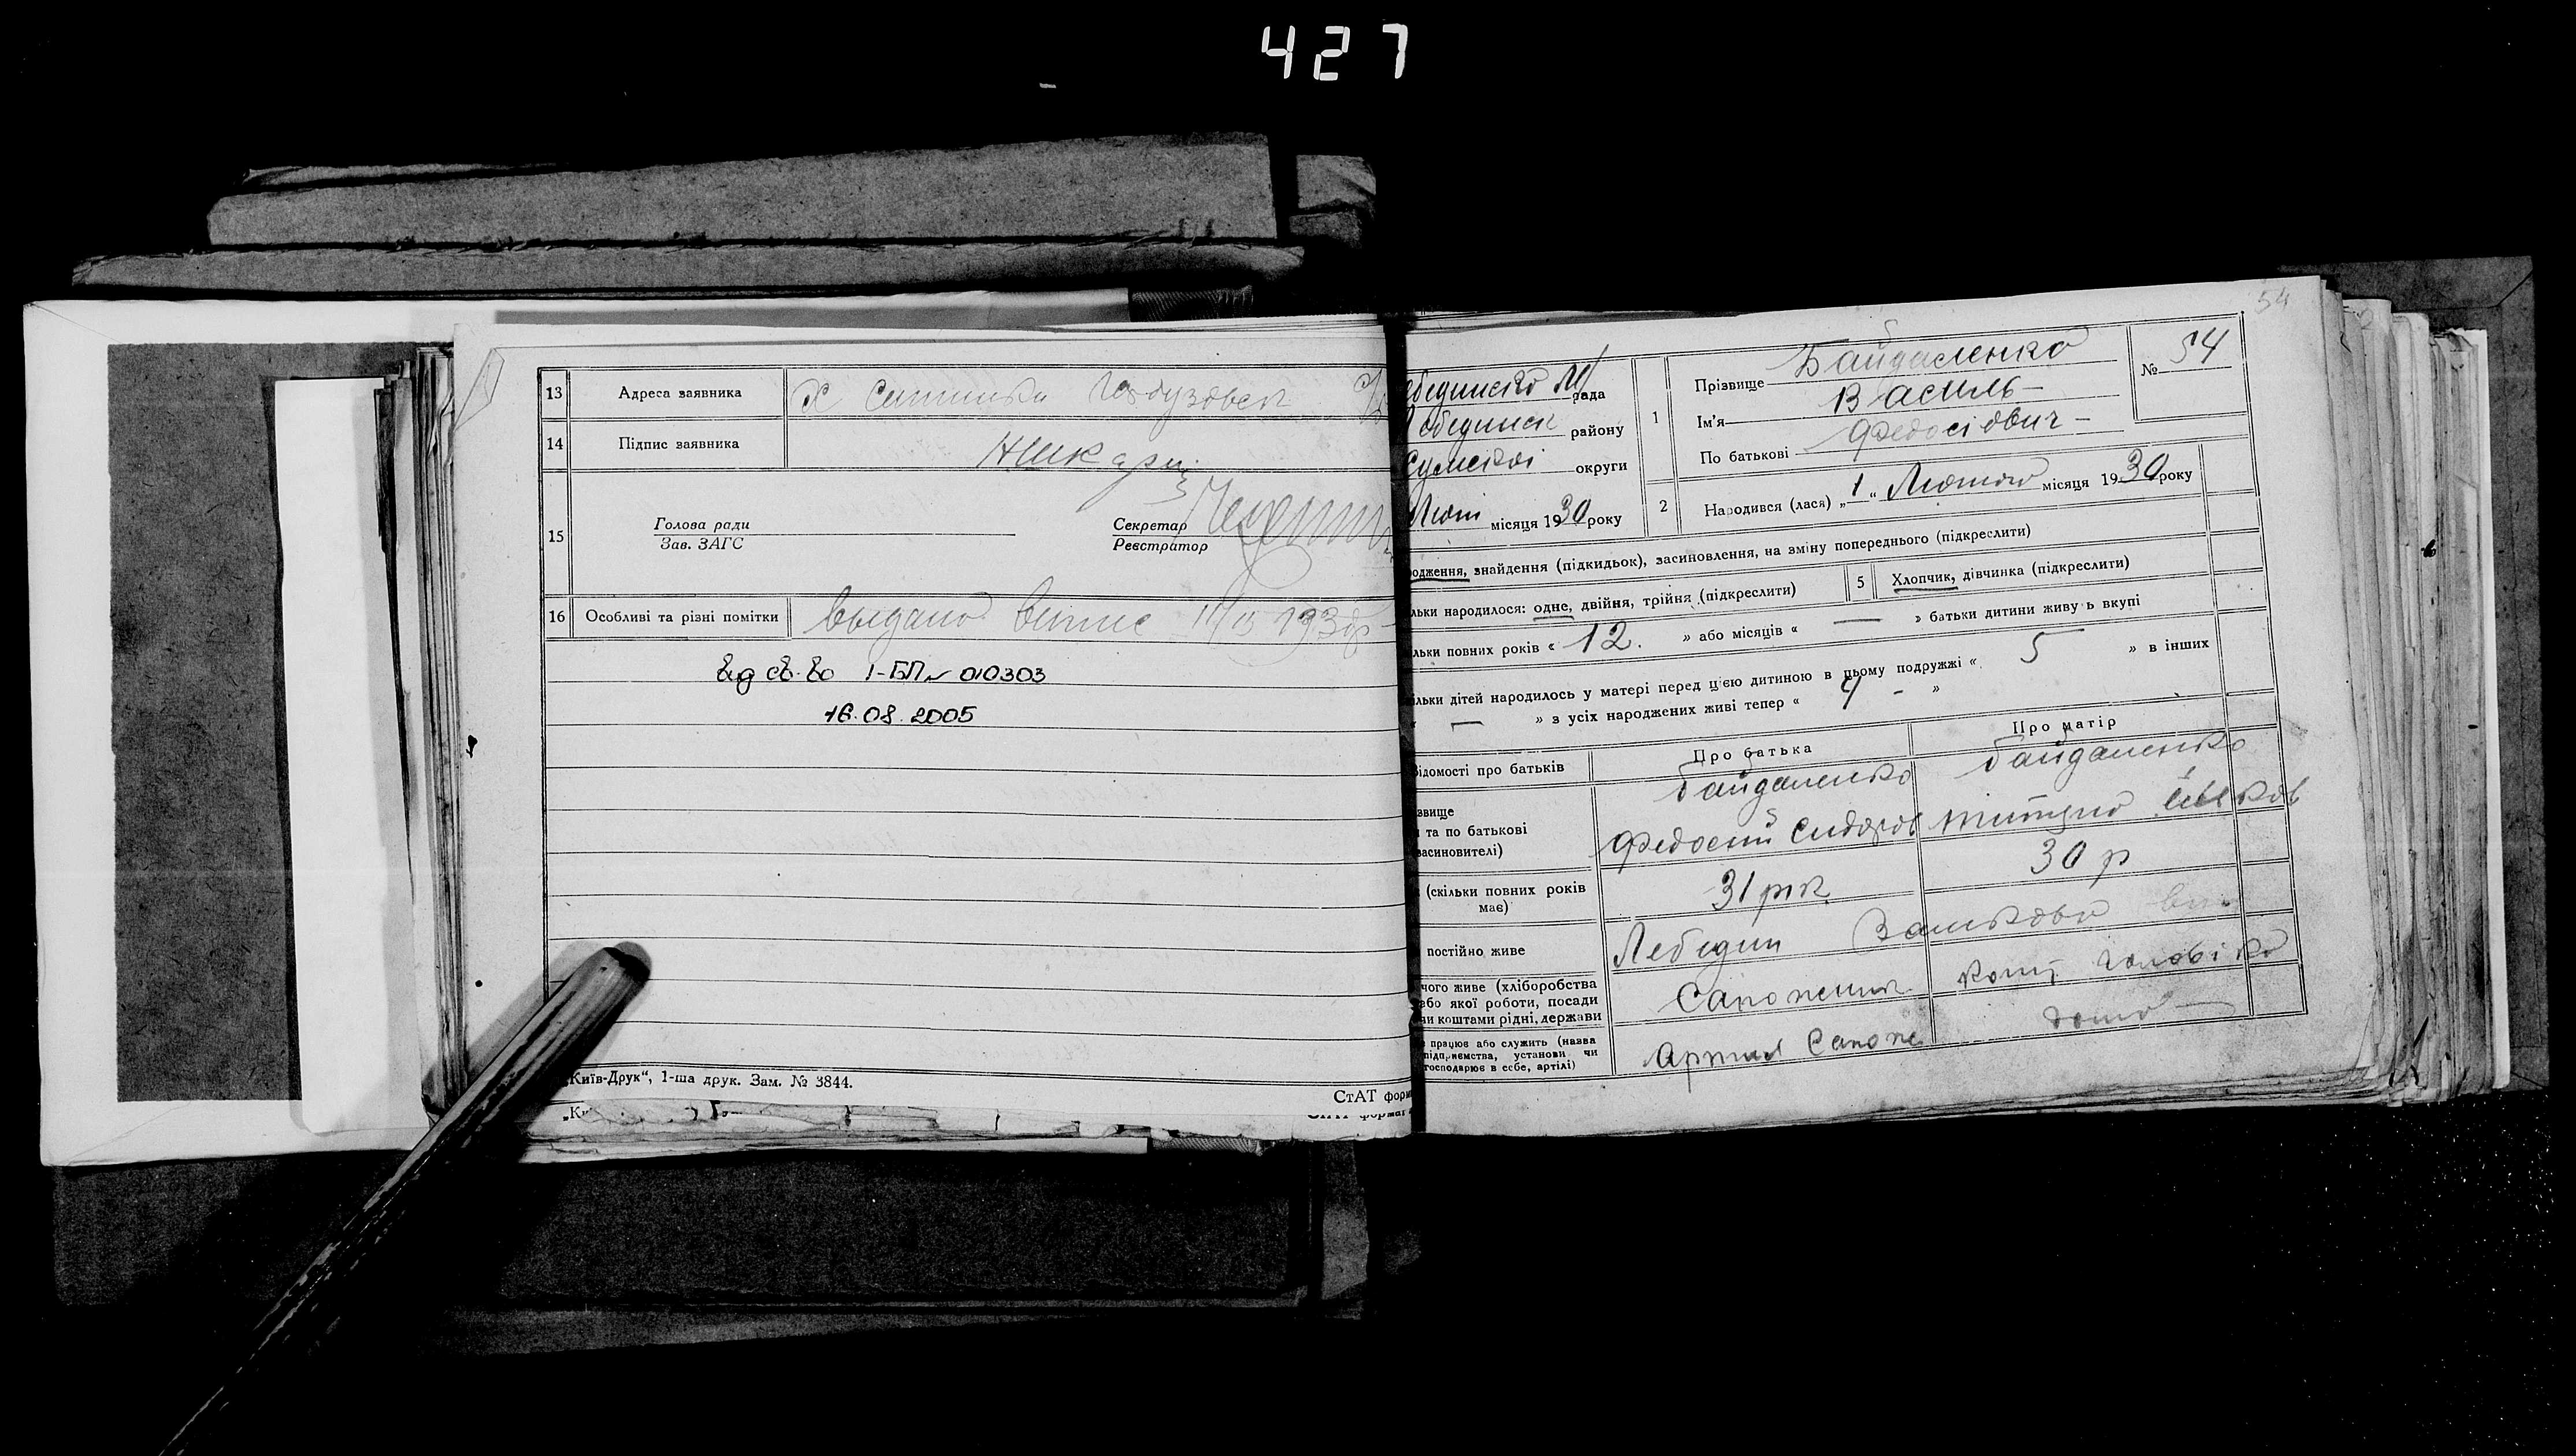 427
13 Адреса заявника Х
14 Підпис заявника
15 Голова ради
Зав. ЗАГС
Секретар
Реєстратор
16 Особливі та різні помітки выдано випис 193
Вид св-во I-БП № 010303
16.08.2005
„Київ-Друк“, 1-ша друк. Зам. № 3844.
СтАТ форм
54
рада
Лебединск району
Сумської округи
Лют місяця 1930 року
1 Прізвище Байдаленко
Ім'я Василь
По батькові Федосійович
№ 54
2 Народився (лася) „1“ Лютого місяця 1930 року
одження, знайдення (підкидьок), засиновлення, на зміну попереднього (підкреслити)
льки народилося: одне, двійня, трійня (підкреслити)
5 Хлопчик, дівчинка (підкреслити)
льки повних років « 12. » або місяців « — » батьки дитини живуть вкупі
льки дітей народилось у матері перед цією дитиною в цьому подружжі « 5 » в інших
« — » з усіх народжених живі тепер « 4 - »
ідомості про батьків
Про батька
Про матір
звище
та по батькові
засиновителі)
Байдаленко
Федосій Сидоров
Байдаленко
(скільки повних років має)
31 рік
30 р
постійно живе
Лебедин
чого живе (хліборобства
або якої роботи, посади
чи коштами рідні, держави
Сапожник
кошт чоловіка
працює або служить (назва
підприємства, установи чи
господарює в себе, артілі)
Артіль Сапож
дома